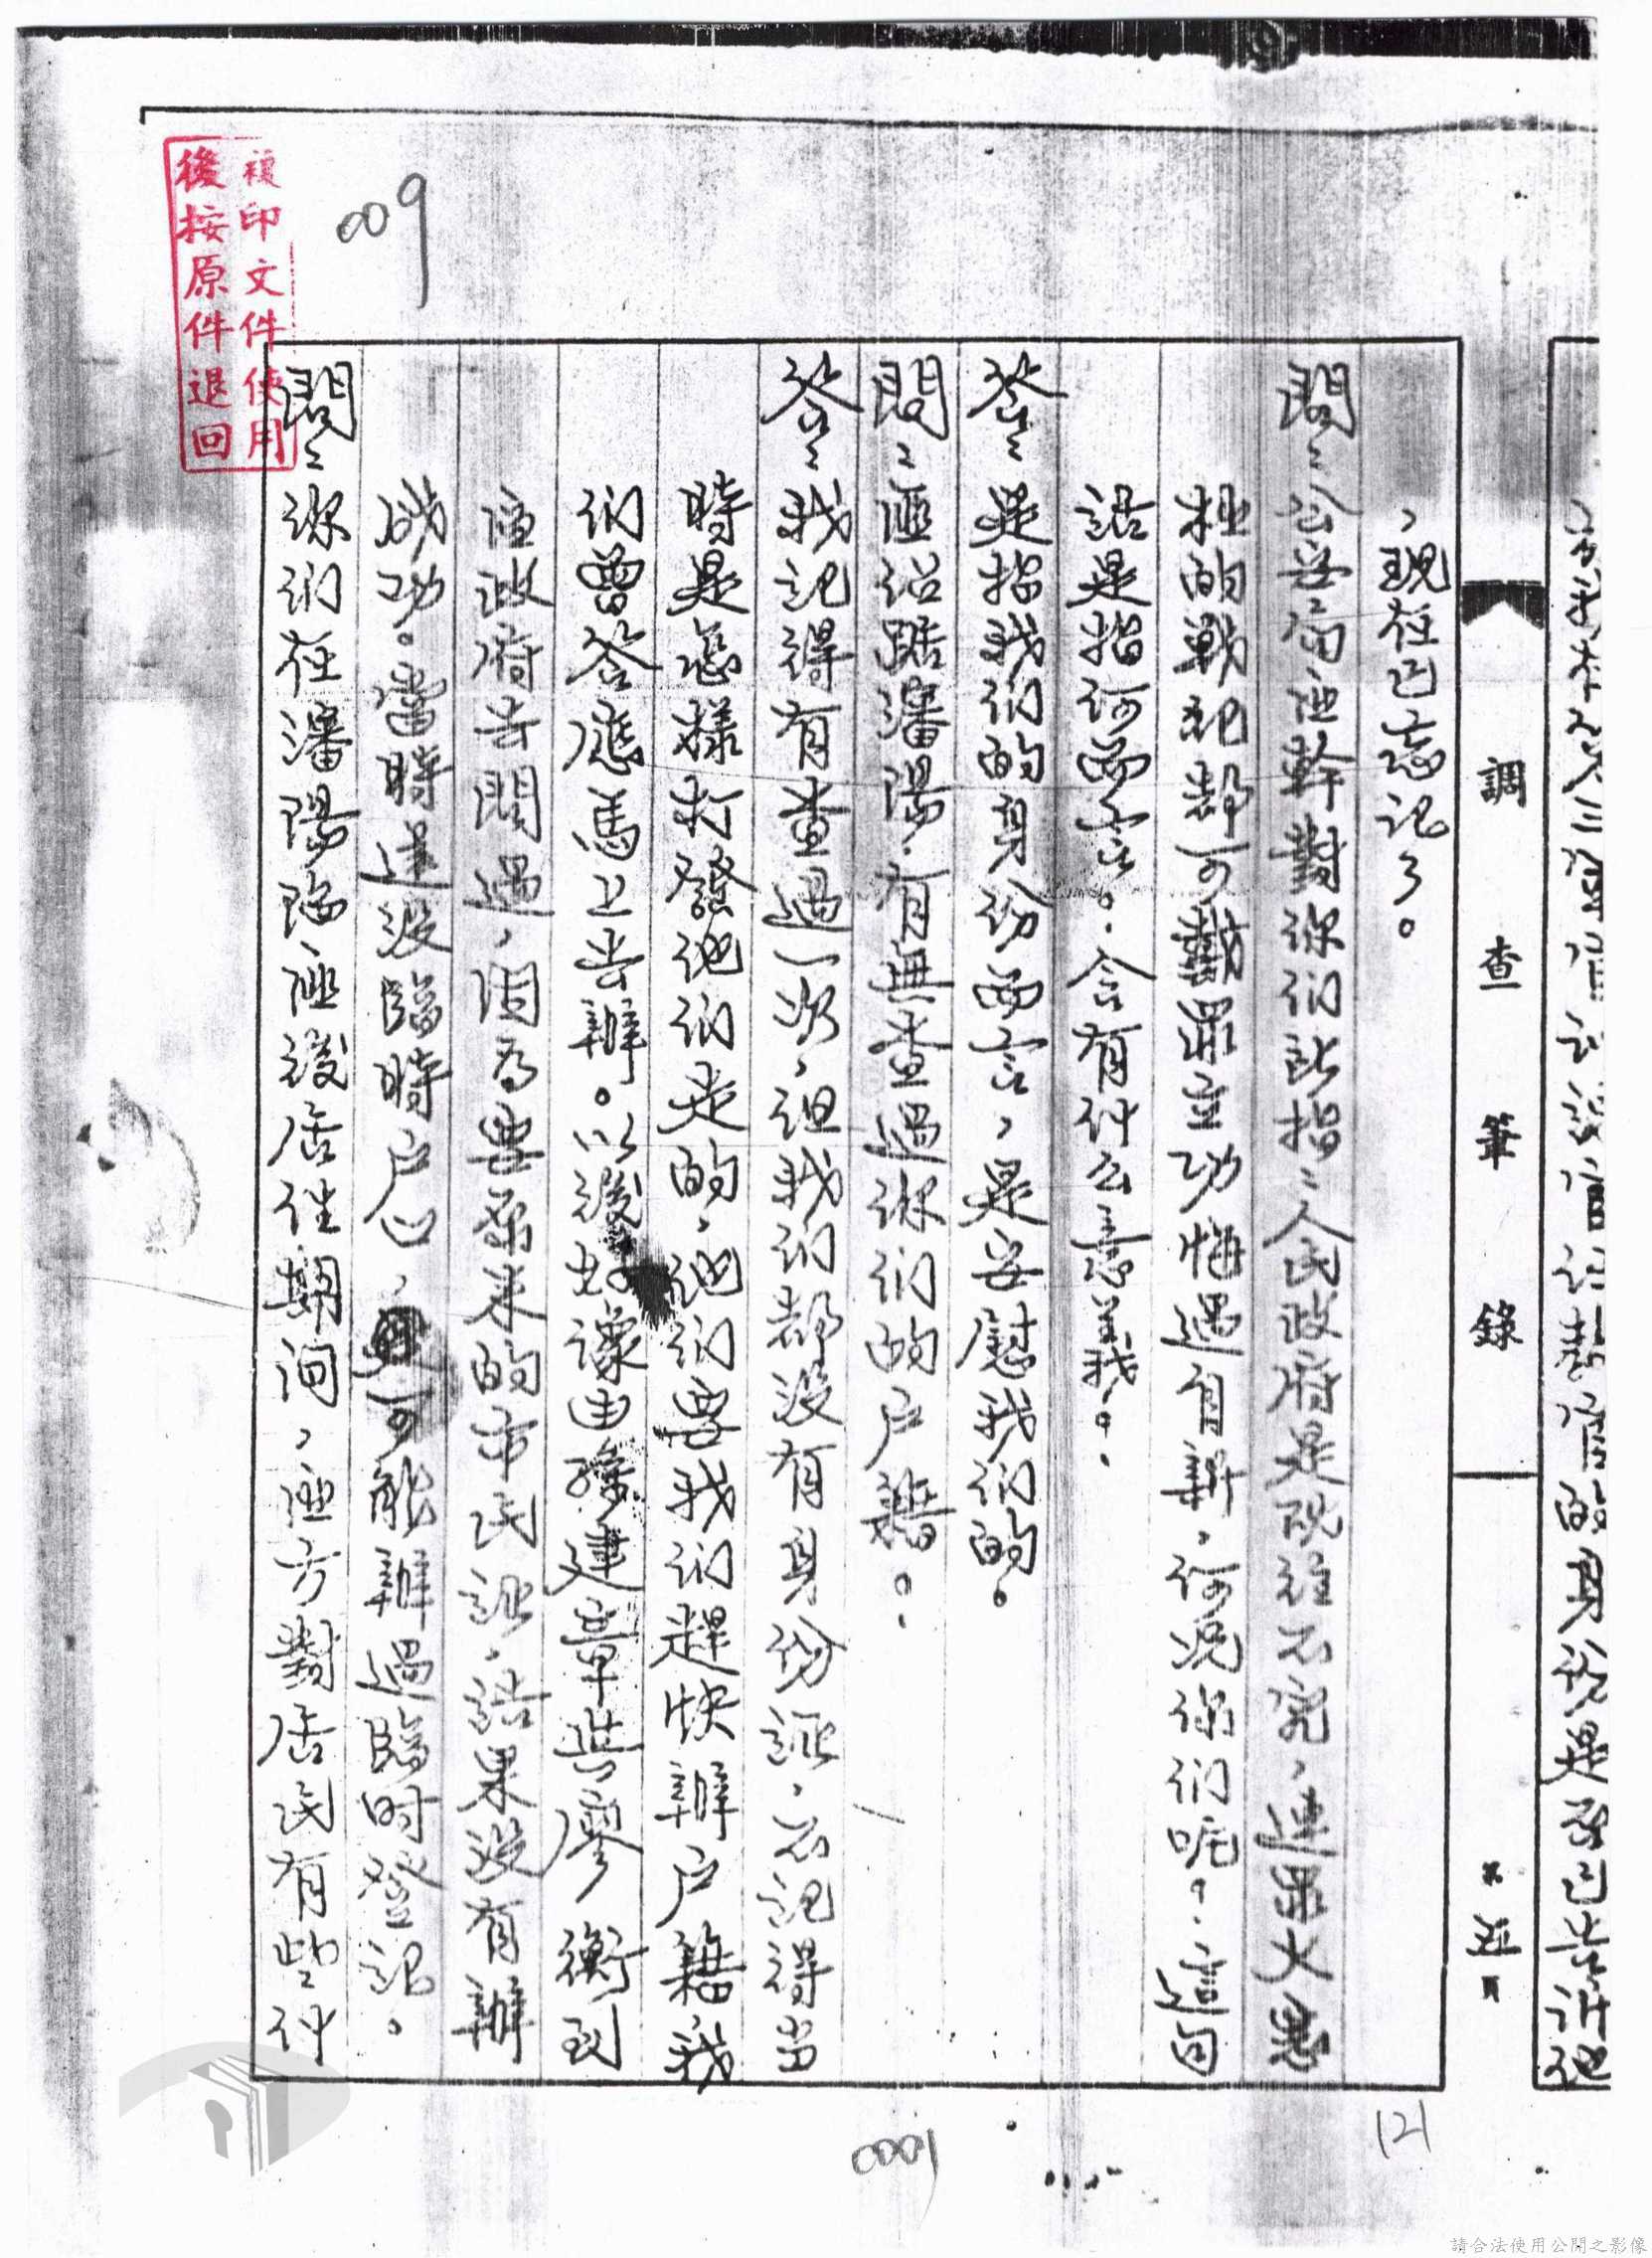 調查筆錄
、現在已忘記了。
問：公安局匪幹對你們所指：人民政府是既往不究，連罪大惡
極的戰犯都可戴罪立功悔過自新，何況你們呢。這句
話是指何而言。含有什么意義。
答：是指我們的身份而言，是安慰我們的。
問：匪佔踞瀋陽，有無查過你們的戶籍。
答：我記得有查過一次，但我們都沒有身份証，不記得当
時是怎樣打發他們走的，他們要我們趕快辦戶籍，我
們曾答應馬上去辦。以後好像由孫建章與廖衡到
匪政府去問過，因為要原來的市民証，結果沒有辦
成功。當時連沒臨時戶口，可能辦過臨时登記。
問：你们在瀋陽陷匪後居住期间，匪方對居民有些什
複印文件使用
後按原件退回
009
0001
121
請合法使用公開之影像